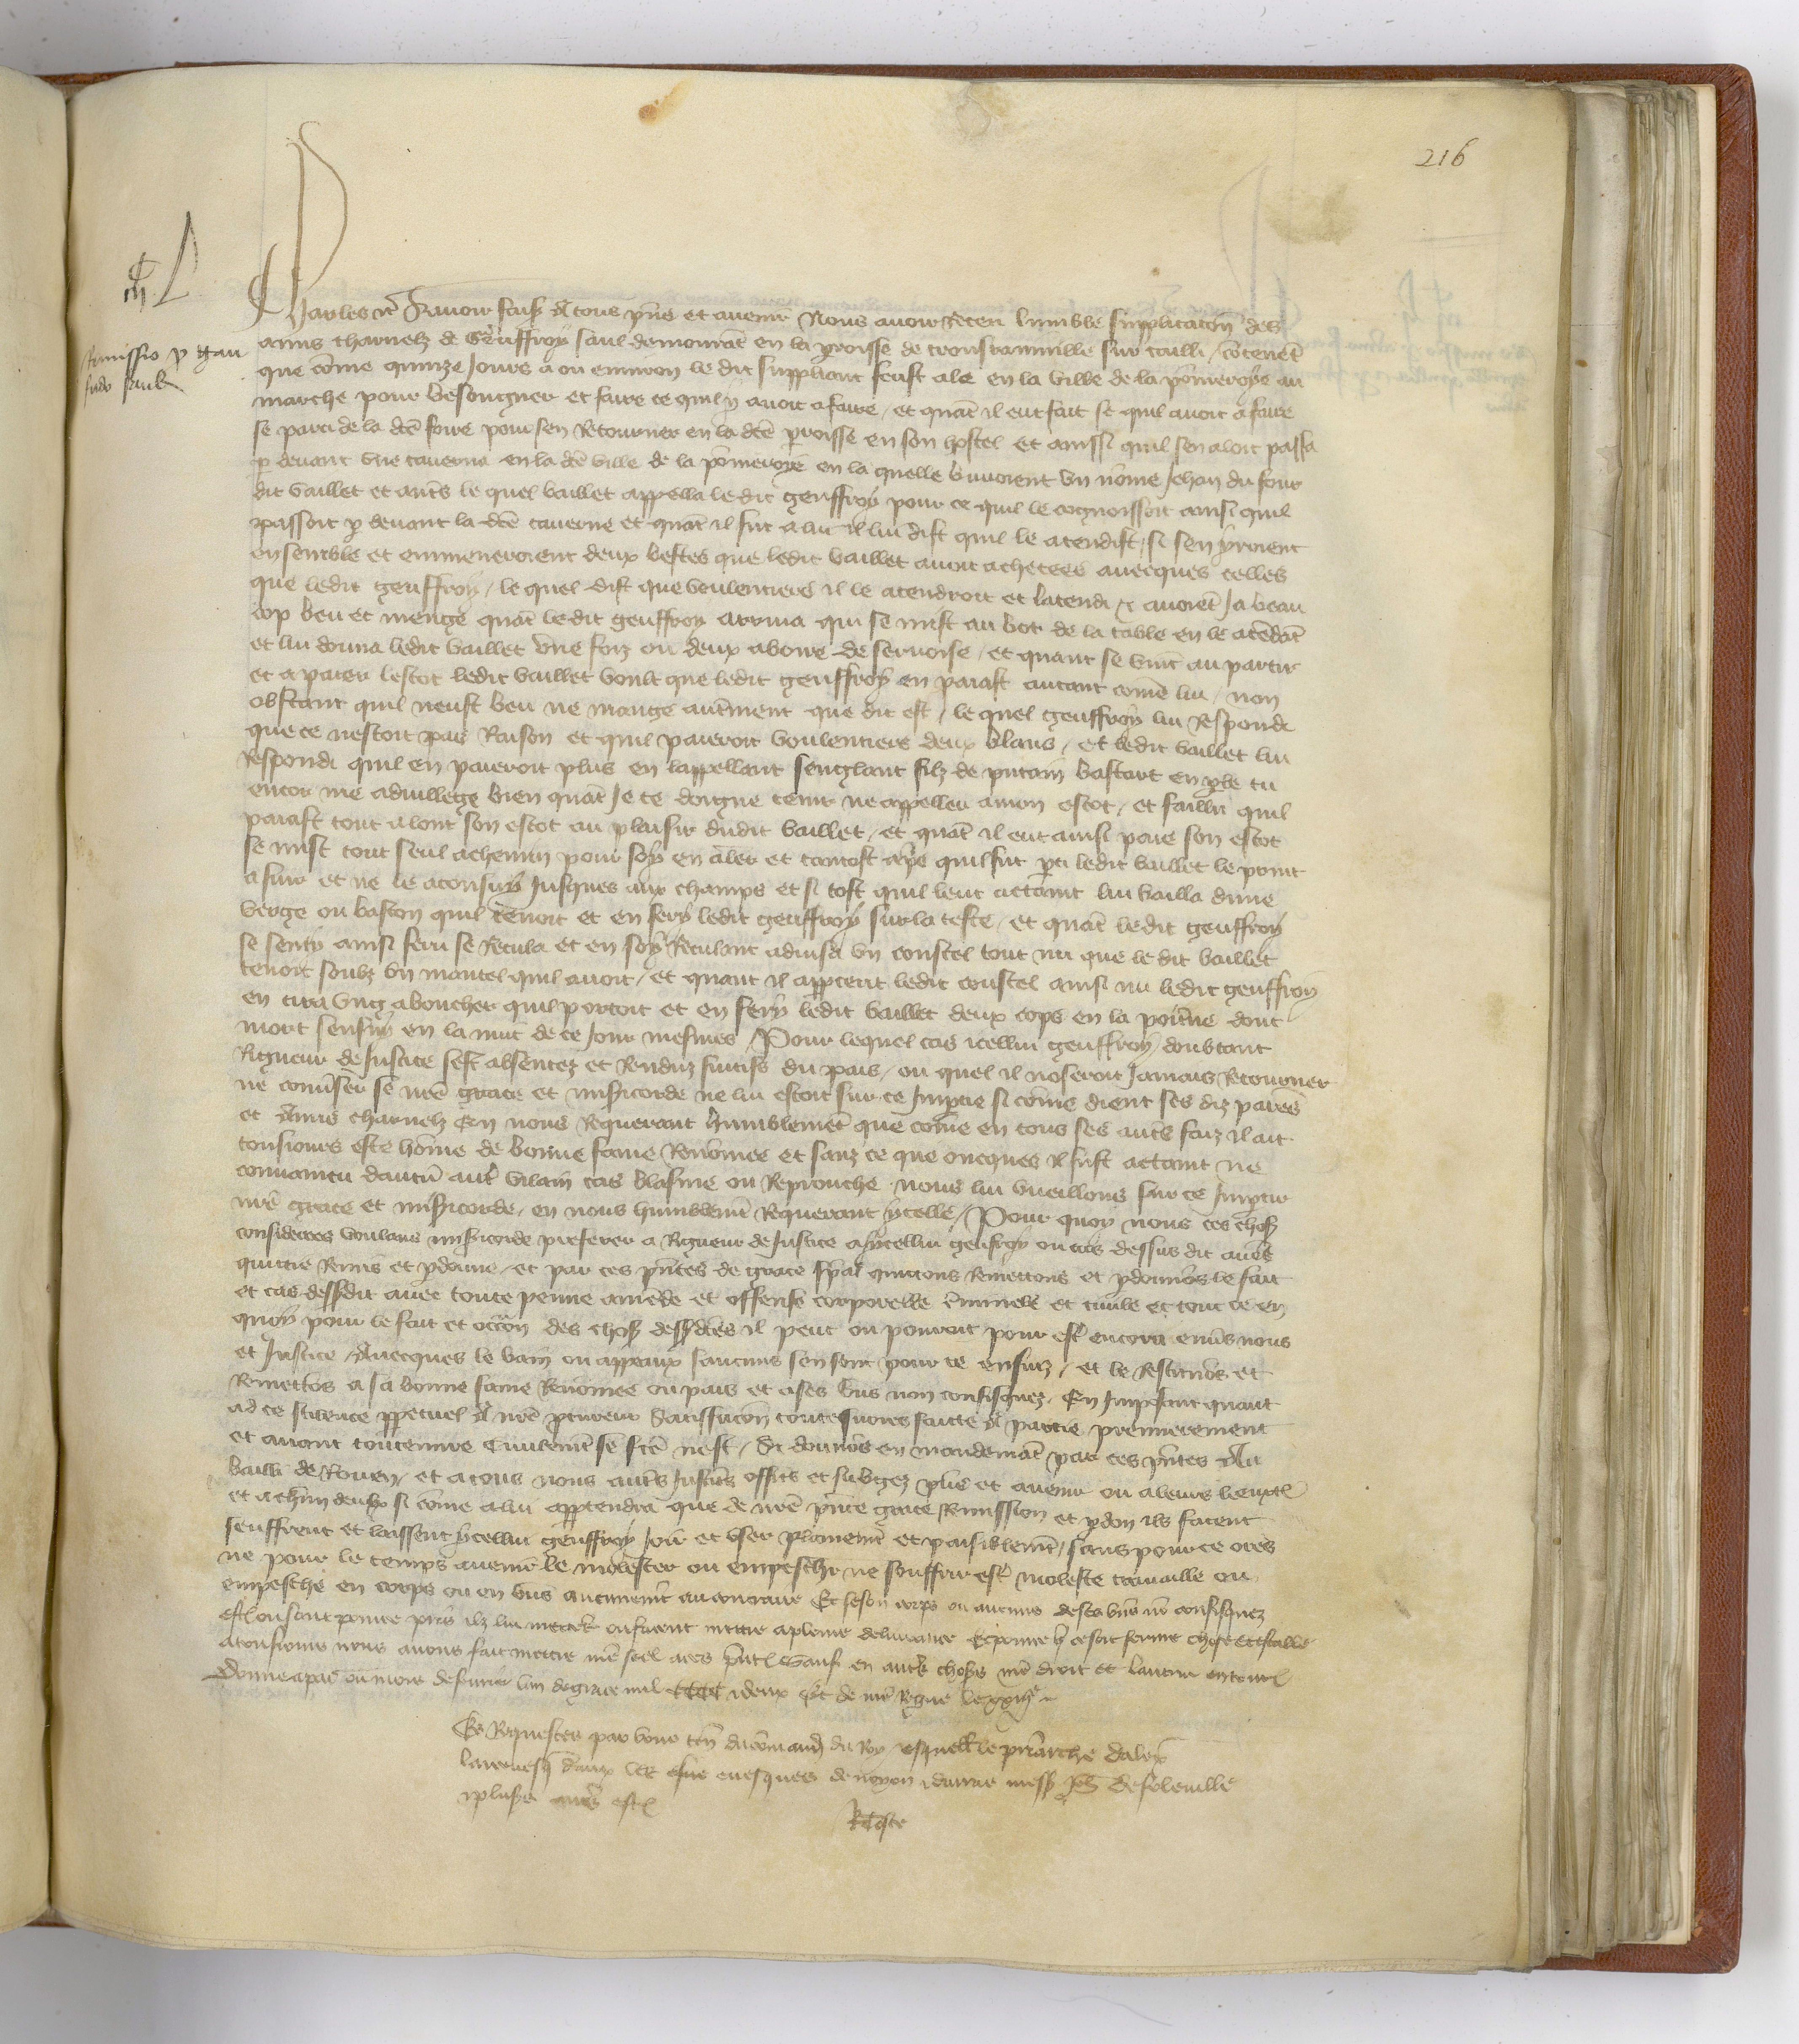 216
Remissio p Gau
frido Saul
Charles etc Savoir faiss A tous pñs et avenir Nous avoir Receu lumble supplicacõn des
amis charnelz de Geuffroy Saul demourãt en la proisse de sur cailli / cõtenẽt
que cõme quinze Jours a ou environ le dit suppliant feust ale en la ville de la põmeroye au
marchie pour besongner et faire ce quil y avoit afaire / et quãt il eut fait se quil avoit afaire
se parti de la dcẽ foire pour sen Retourner en la dcẽ proisse en son hostel et ainssi quil sen aloit passa
p devant une taverne en la dcẽ ville de la põmeroye en la quelle buvoient un nõme Jehan du four
dit Vaillet et auts le quel vaillet appella le dit geuffroy pour ce quil le cognoissoit ainsi quil
passoit p devant la dcẽ taverne et quãt il fut a lui il lui dist quil le atendist / si sen yroient
ensemble et enmeneroient deux bestes que ledit vaillet avoit achetees avecques celles
que ledit geuffroy / le quel dist que voulentiers il le atendroit et latendi et avoiẽt Ja beau
cop beu et mengé quãt le dit geuffroy arriva qui se mist au bot de la table en le atẽdãt
et lui donna ledit vaillet une foiz ou deux aboire de servoise / et quant se vint au partir
et a paier lescot ledit vaillet voult que ledit geuffroy en paiast autant cõme lui / non
obstant quil neust beu ne mangé autrment que dit est / le quel geuffroy lui Respondi
que ce nestoit pas Raison et quil paieroit voulentiers deux blans / et ledit vaillet lui
Respondi quil en paieroit plus en lappellant senglant filz de putain bastart tu
encor me bien quãt Je te doigne tenir ne appeller amon escot / et failli quil
paiast tout son escot au plaisir dudit vaillet / et quãt il eut ainsi paie son escot
se mist tout seul achemin pour soy en aler et tantost apẽs quil fut pti ledit vaillet le print
a suir et ne le aconsuy Jusques aux champs et si tost quil leut actaint lui bailla dune
verge ou baston quil tenoit et en fery ledit geuffroy sur la teste / et quãt le dit geuffroy
se senty ainsi feru se Recula et en soy Reculant advisa un coustel tout nu que le dit vaillet
tenoit soubz un mantel quil avoit / et quant il appceut ledit coustel ainsi nu ledit geuffroy
en tira ung aboucher quil portoit et en fery ledit vaillet deux cops en la poitrine dont
mort sensuy en la nuit de ce Jour mesmes / Pour lequel cas icellui geuffroy doubtant
Rigueur de Justice sest absentez et Renduz fuitis du pais / ou quel il noseroit Jamais Retourner
ne se nrẽ grace et misicorde ne lui estoit sur ce Jmptie si cõme dient ses diz parẽs
et Amis charnelz En nous Requerant humblemẽt que cõme en tous ses auts faiz il ait
tousiours este hõme de bonne fame Renõmee et sanz ce que oncques il fust actaint ne
convaincu daucũ autr vilain cas blasme ou Reprouche nous lui vueillons sur ce Jmptir
nrẽ grace et misicorde / en nous humblemt Requerant ycelle / Pour quoy nous ces choss
considerees voulans misicorde preferer a Rigueur de Justice a ycellui geufroy ou cas dessus dit avõs
quictie Remis et pdonne / et par ces pñtes de grace spãl quictons Remettons et pdonnõs le fait
et cas dessdit avec toute peinne amẽde et offense corporelle cminele et civile et tout ce en
quoy pour le fait et occõn des choss dessdcẽs il peut ou pourroit pour estr encoru envs nous
et Justice / Avecques le ban ou appeaux saucuns sen sont pour ce ensuiz / et le Restituõs et
Remettõs a sa bonne fame Renõmee ou pais et ases biẽs non confisquez / En Jmposant quant
ad ce silence ppetuel A nrẽ pcureur Satisfacõn toutesvoies faicte A partie premierement
et avant toutenvre Civilemt se fcẽ nest / Si donnõs en mandemãt par ces pñtes Au
bailli de Rouen / et a tous nous auts Justics offics et subgez pñs et avenir ou a leurs lieuxtẽ
et a chũn deulx si cõme a lui appendra que de nrẽ pñte grace Remission et pdon ilz facent
seuffrent et laissent ycellui geuffroy Joir et user plainemt et paisiblemt / sans pour ce ores
ne pour le temps avenir le molester ou empescher ne souffrir estr moleste travaille ou
empesche en corps ou en biẽs aucunemt au contraire Et se son corps ou aucuns de ses biẽs nõ confisquez
estoiẽt ou sont pour ce pris ilz lui mettẽt ou facent mettre a plaine delivrance Et pour q ce soit ferme chose et estable
atousiours nous avons fait mettre nrẽ seel a ces pñtes Sauf en auts choses nrẽ droit et lautruy en toutes
Donne a paris ou mois de fevrier lan de grace mil cccc et deux et de nrẽ Regne le xxiije
Es Requestes par vous ten du cõmand du Roy / esquell le prñarche dalexe
larcevesq daux les evesques de noyon messe Jeh de foleville
et plusrs auts estoiẽt